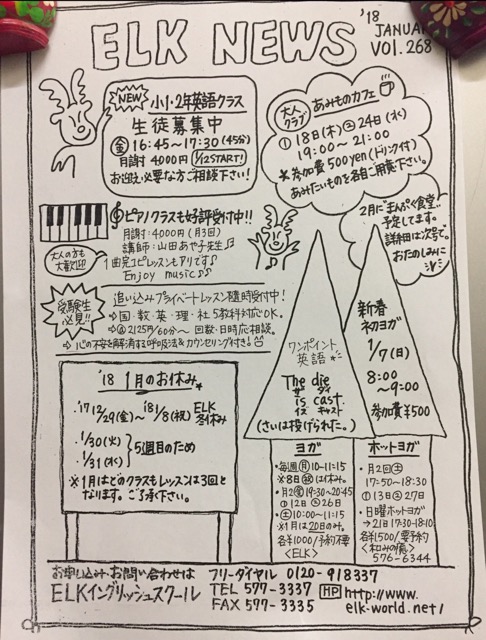 ELK NEWS
'18
JANUAR
VOL.268
NEW 小1・2年英語クラス
生徒募集中
金 16:45〜17:30(45分)
月謝 4000円 1/12START!
お迎え必要な方ご相談下さい!
大人クラブ あみものカフェ
①18日(木)②24日(水)
19:00〜21:00
*参加費500yen(ドリンク付)
あみたいものを各自ご用意下さい。
2月に"まんぷく食堂"
予定してます。
詳細は次号で。
おたのしみに
ピアノクラスも好評受付中!!
月謝:4000円(月3回)
講師:山田あや子先生♫
1曲完コピレッスンもアリです♪
Enjoy music♪♪
大人の方も
大歓迎!!
受験生
必見!!
追い込みプライベートレッスン随時受付中!
⇨国・教・英・理・社5教科対応OK。
⇨@2125円/60分〜 回数・日時応相談。
⇨心の不安を解消する呼吸法&カウンセリング付き!
ワンポイント
英語*
The die
ザ ダイ
is cast.
イズ キャスト
(さいは投げられた。)
新春
初ヨガ
1/7(日)
8:00
〜9:00
参加費¥500
'18 1月のお休み*
'17 12/29(金)〜'18 1/8(祝) ELK冬休み
・1/30(火)
・1/31(水)
5週目のため
※1月はどのクラスもレッスンは3回と
なります。ご了承下さい。
ヨガ
・毎週月10-11:15
※8日祝は休み。
・月2金19:30〜20:45
①12日②26日
・土10:00〜11:15
※1月は20日のみ。
各¥1000/予約不要
<ELK>
ホットヨガ
・月2回土
17:50-18:30
①13日②27日
・日曜ホットヨガ
→21日17:30-18:10
各¥1500/要予約
<和みの癒>
576-6344
お申し込み・お問い合わせは
ELKイングリッシュスクール
フリーダイヤル 0120-918337
TEL 577-3337
FAX 577-3335
HP http://www.
elk-world.net/